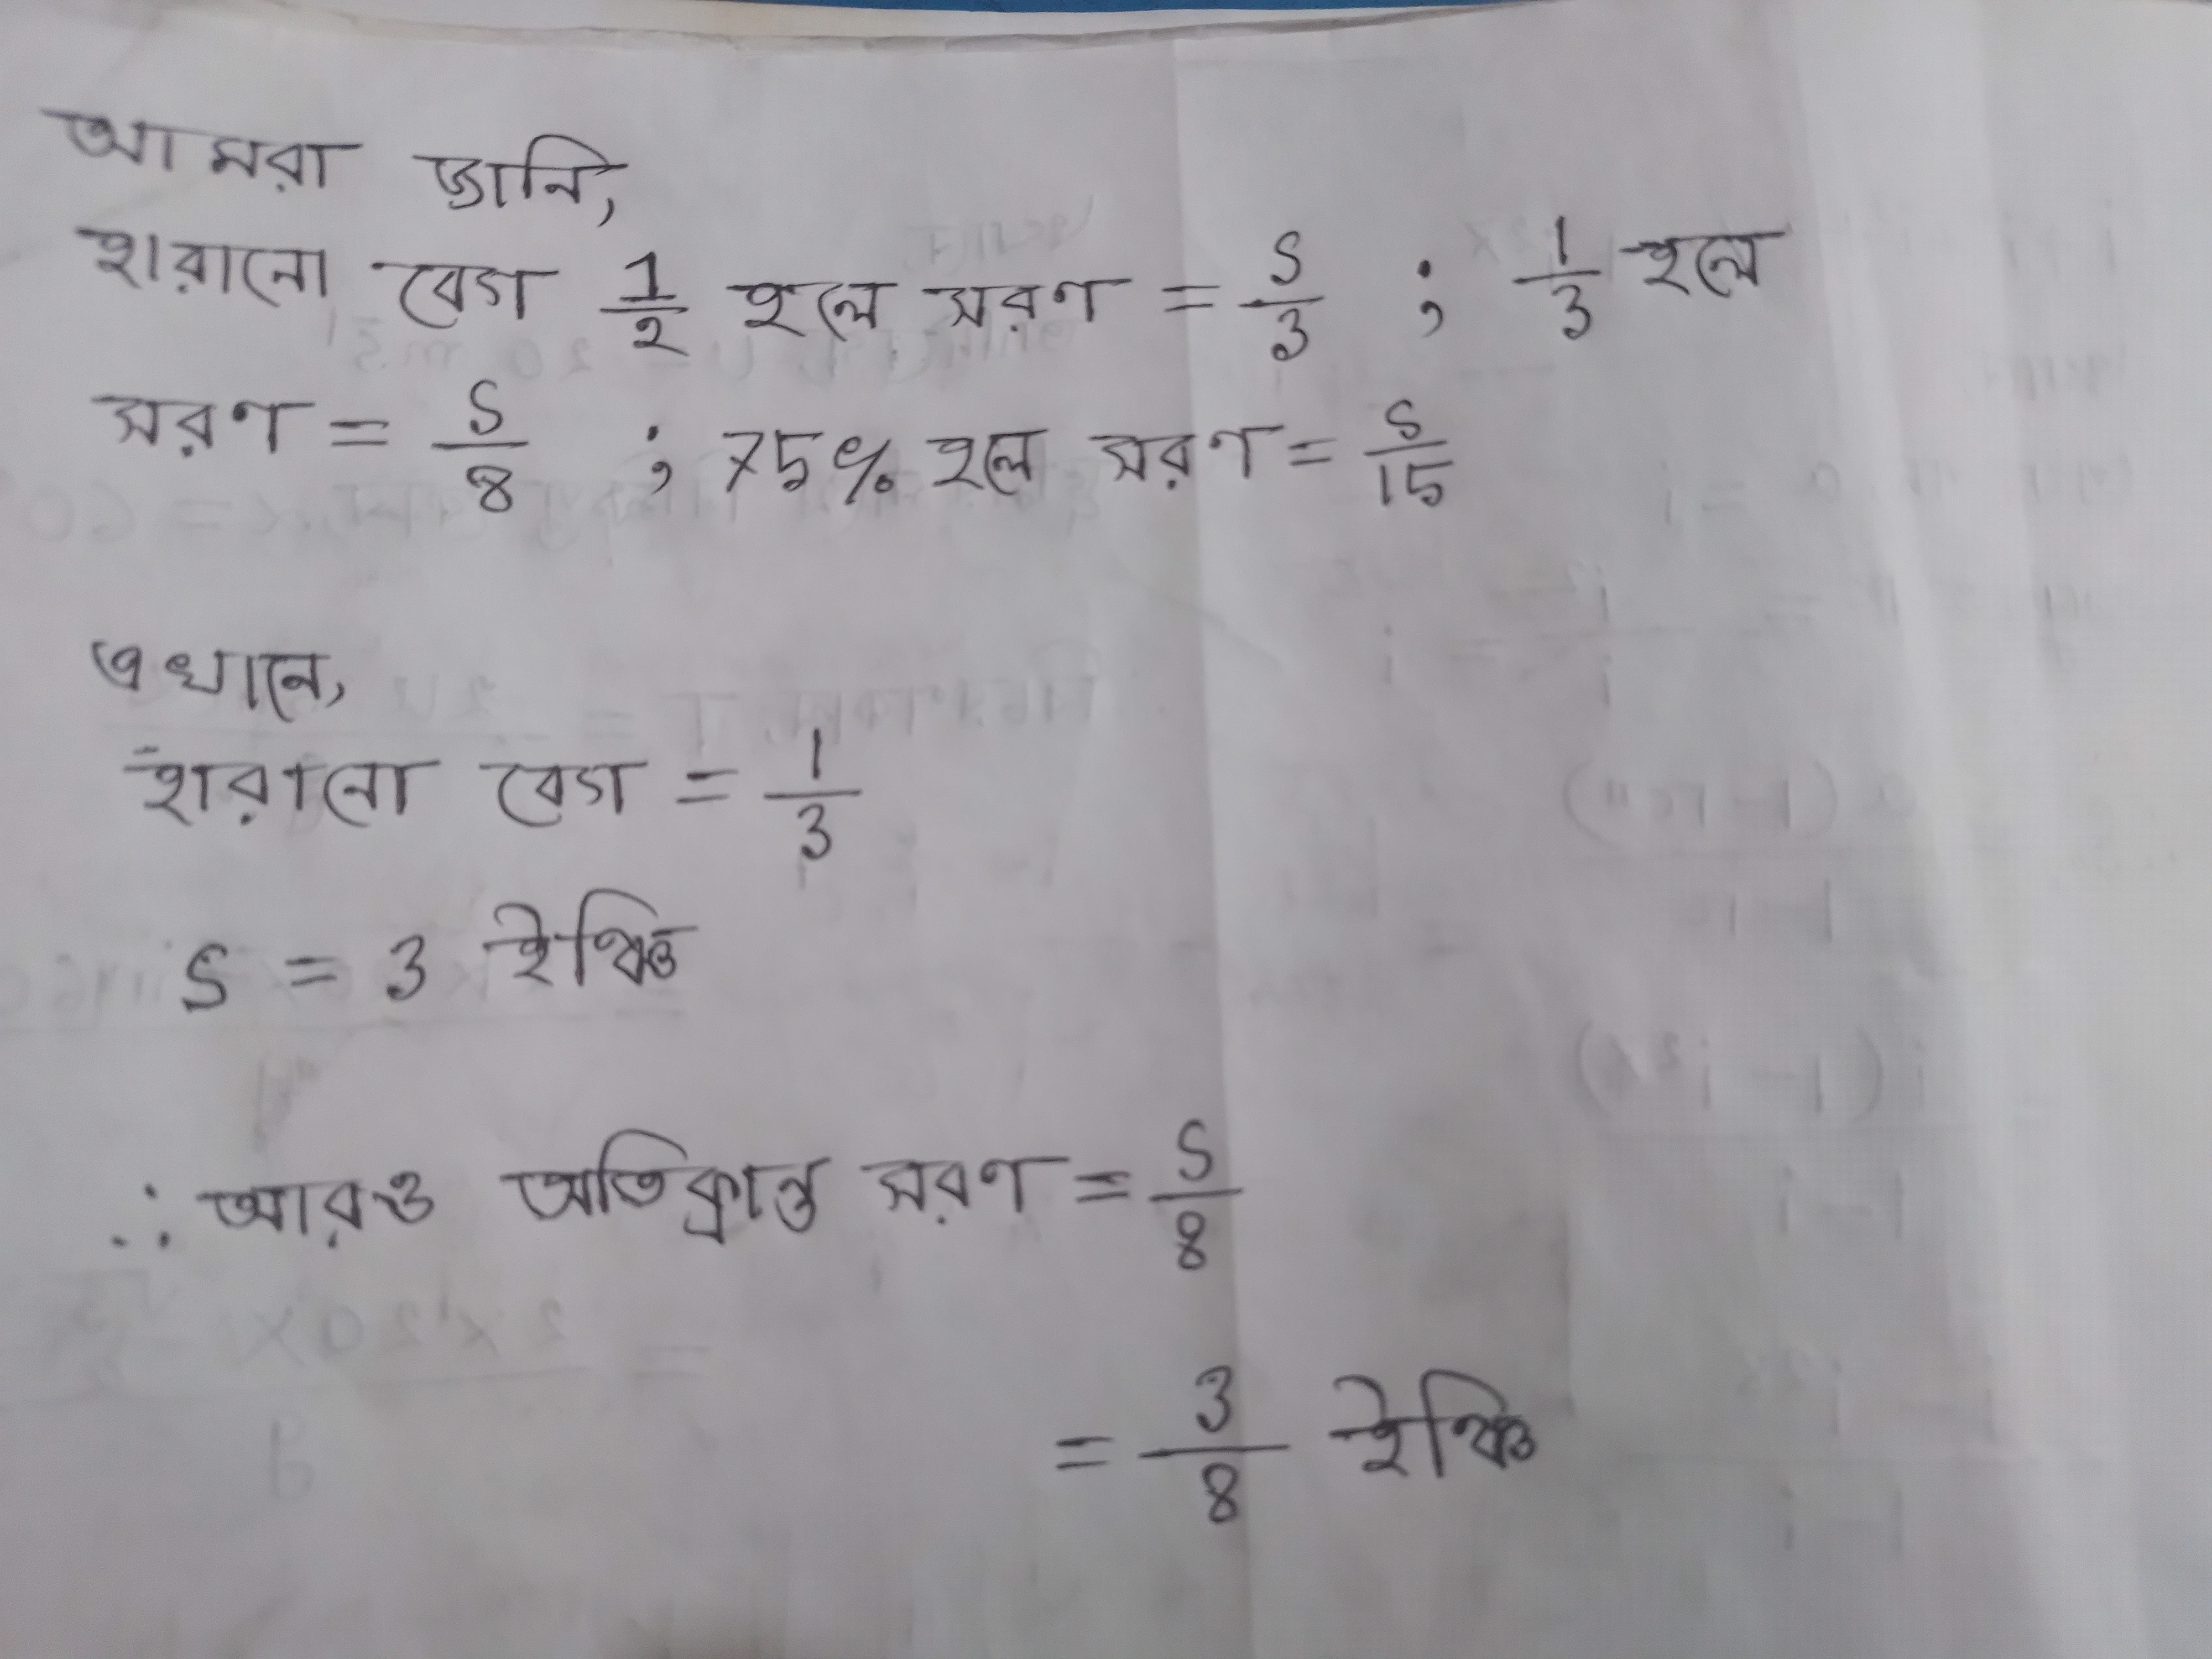 আমরা জানি,
হারানো বেগ 1/2 হলে সরণ = S/3 ; 1/3 হলে
সরণ = S/8 ; 75% হলে সরণ = S/15
এখানে,
হারানো বেগ = 1/3
S = 3 ইঞ্চি
∴ আরও অতিক্রান্ত সরণ = S/8
= 3/8 ইঞ্চি